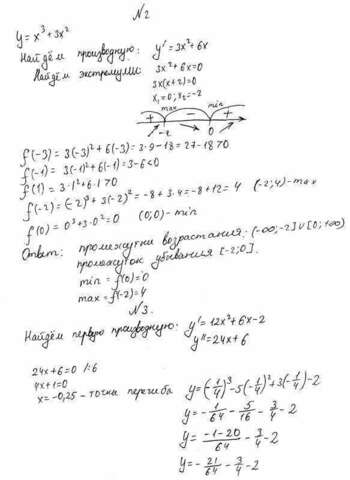 №2
y = x³ + 3x²
Найдём производную: y' = 3x² + 6x
Найдём экстремумы: 3x² + 6x = 0
3x(x+2) = 0
x₁ = 0; x₂ = -2
max min
+ - +
-2 0
f(-3) = 3(-3)² + 6(-3) = 3·9 - 18 = 27 - 18 > 0
f(-1) = 3(-1)² + 6(-1) = 3 - 6 < 0
f(1) = 3·1² + 6·1 > 0
f(-2) = (-2)³ + 3(-2)² = -8 + 3·4 = -8 + 12 = 4 (-2;4) - max
f(0) = 0³ + 3·0² = 0 (0;0) - min
Ответ: промежутки возрастания: (-∞; -2] ∪ [0; +∞)
промежуток убывания [-2; 0].
min = f(0) = 0
max = f(-2) = 4
№3.
Найдём первую производную: y' = 12x² + 6x - 2
y'' = 24x + 6
24x + 6 = 0 /:6
4x + 1 = 0
x = -0,25 - точка перегиба
y = (-1/4)³ - 5(-1/4)² + 3(-1/4) - 2
y = -1/64 - 5/16 - 3/4 - 2
y = (-1-20)/64 - 3/4 - 2
y = -21/64 - 3/4 - 2